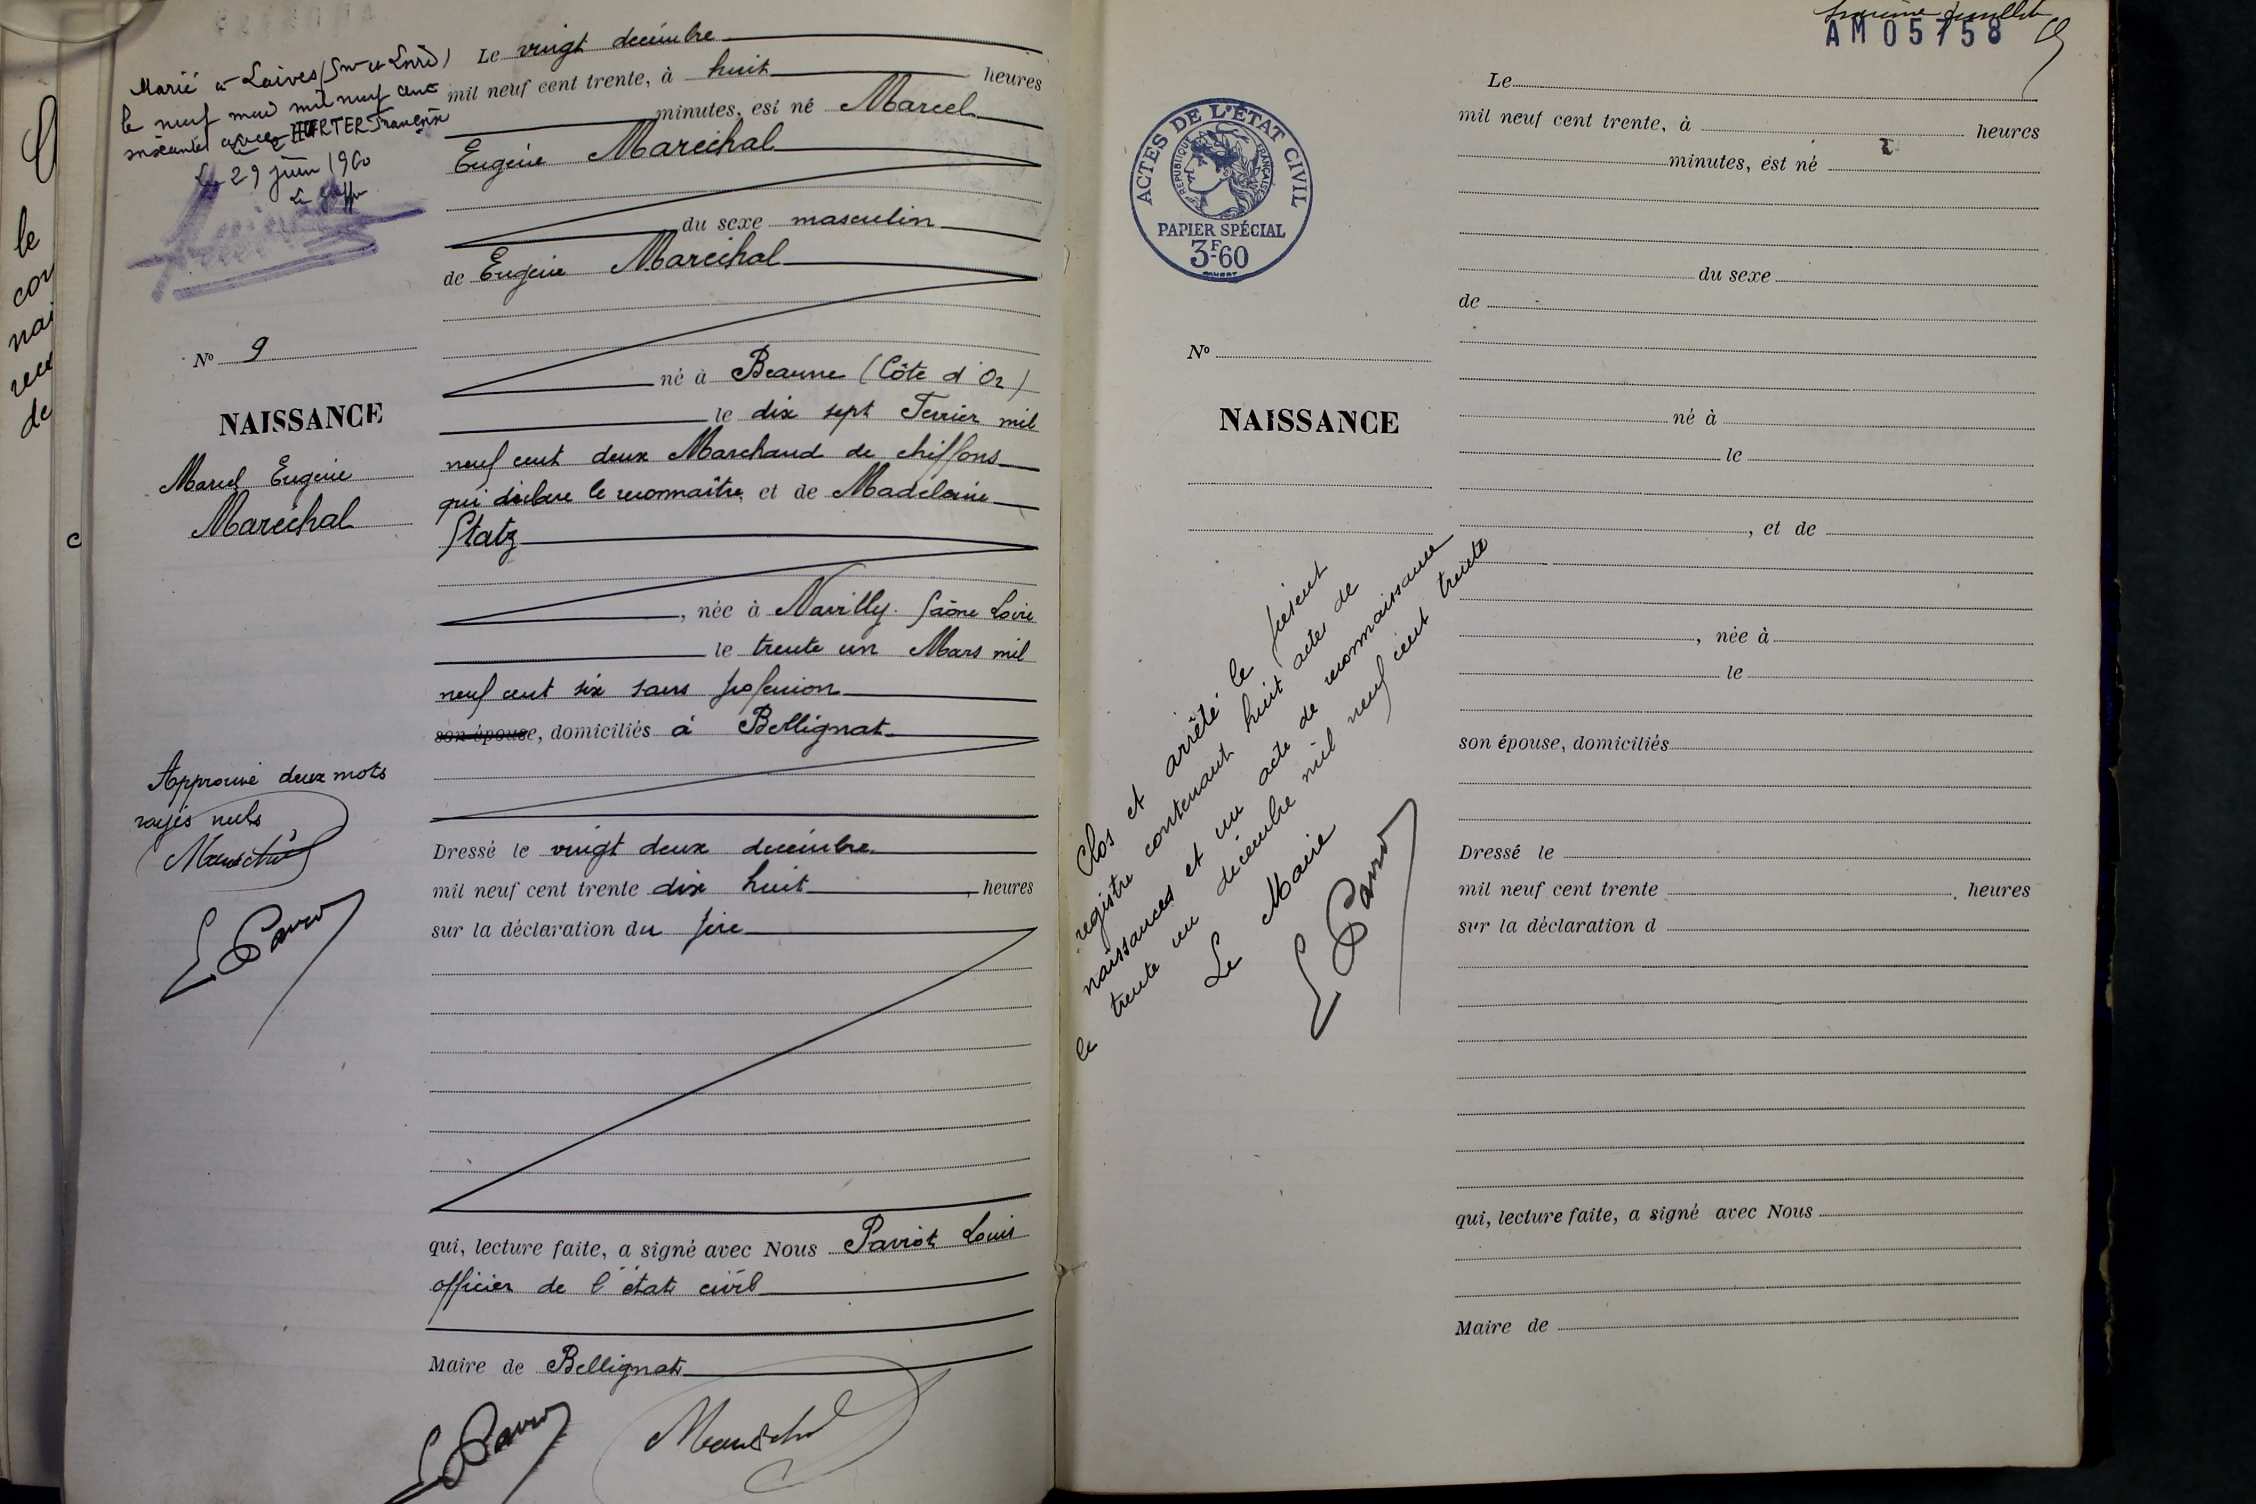 Marié à Laives (Sne et Loire)
le neuf mai mil neuf cent
soixante avec HERTER Françoise
Le 29 juin 1960
Le
Nº 9
NAISSANCE
Marcel Eugène
Maréchal
Approuvé deux mots
rayés nuls
Le vingt décembre
mil neuf cent trente, à huit heures
minutes, est né Marcel
Eugène Maréchal
du sexe masculin
de Eugène Maréchal
né à Beaune (Côte d'Or)
le dix sept Février mil
neuf cent deux Marchand de chiffons
qui déclare le reconnaître, et de Madeleine
Statz
, née à Navilly Saône Loire
le trente un Mars mil
neuf cent six sans profession
son épouse, domiciliés à Bellignat
Dressé le vingt deux décembre
mil neuf cent trente dix huit, heures
sur la déclaration du père
qui, lecture faite, a signé avec Nous Paviot Louis
officier de l'état civil
Maire de Bellignat
le
nai
de
c
AM05758
ACTES DE L'ÉTAT CIVIL
RÉPUBLIQUE FRANÇAISE
PAPIER SPÉCIAL
3F.60
Nº
NAISSANCE
Clos et arrêté le présent
registre contenant huit actes de
naissances et un acte de reconnaissance
le trente un décembre mil neuf cent trente
Le Maire
Le
mil neuf cent trente, à heures
minutes, est né
du sexe
de
né à
le
, et de
, née à
le
son épouse, domiciliés
Dressé le
mil neuf cent trente , heures
sur la déclaration d
qui, lecture faite, a signé avec Nous
Maire de